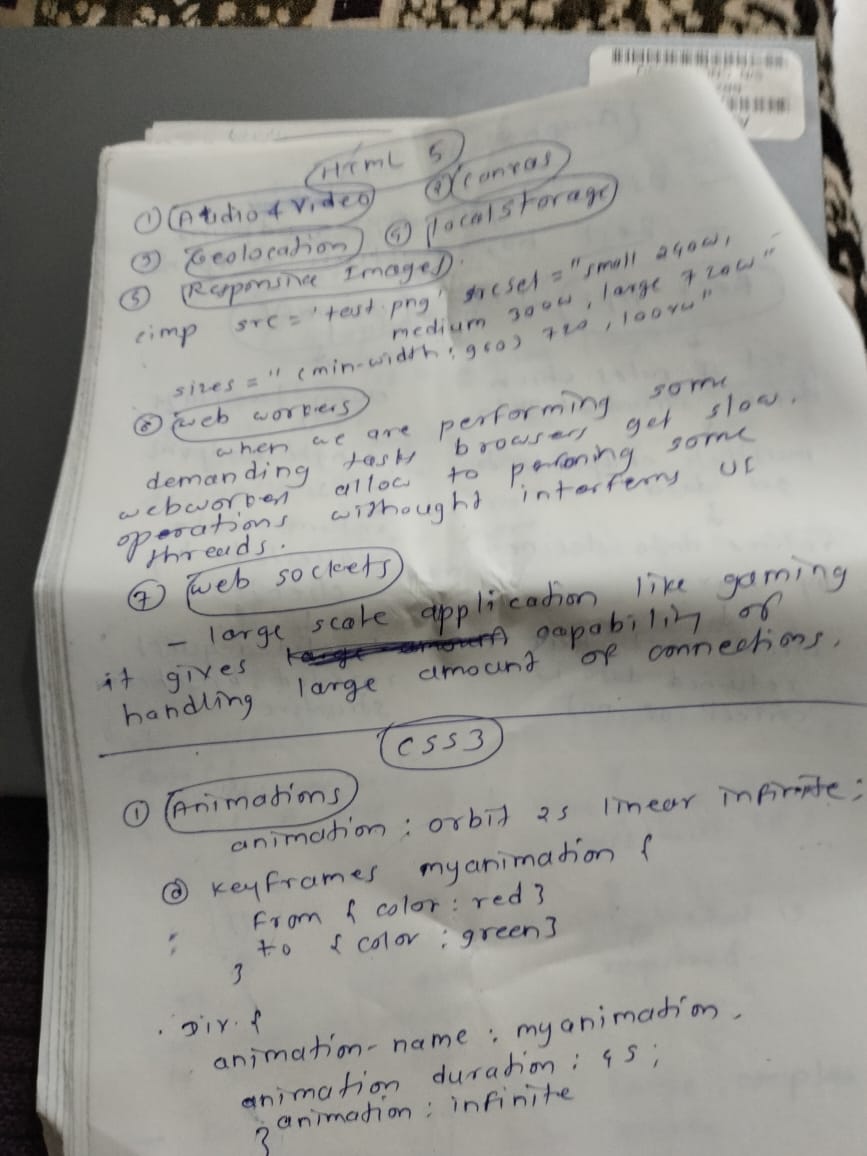 HTML 5
① Audio & Video ② Canvas
③ Geolocation ④ localstorage
⑤ Responsive Images.
<imp src = 'test.png' srcset = "small 240w,
medium 300w, large 720w"
sizes = " (min-width: 960) 720, 100vw"
⑥ web workers
when we are performing some
demanding tasks browsers get slow.
webworkers allow to peroning some
operations withought interferns UI
threads.
⑦ web sockets
- large scale application like gaming
it gives capability of
handling large amount of connections.
CSS3
① Animations
animation : orbit 2s linear infinite;
@ keyframes myanimation {
from { color : red }
to { color : green }
}
. Div. {
animation-name : myanimation.
animation duration : 4s ;
animation : infinite
}